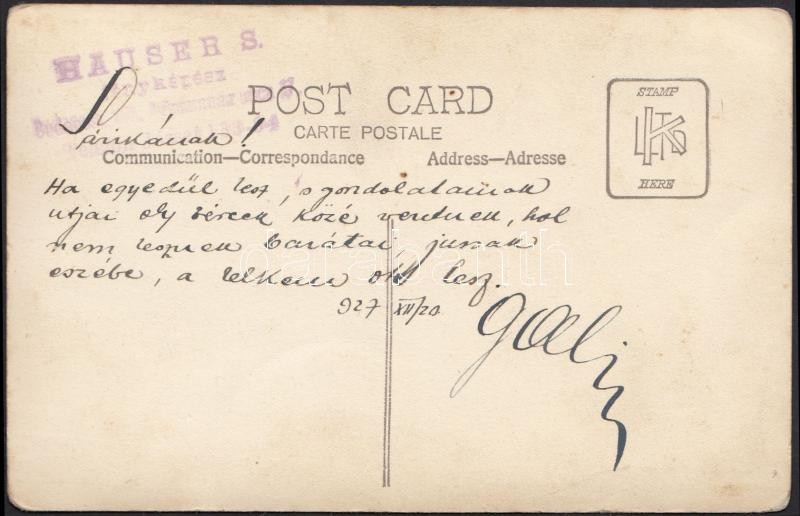 HAUSER S.
fényképész
POST CARD
CARTE POSTALE
Communication—Correspondance
Address—Adresse
STAMP
HERE
Sárikának!
Ha egyedül lesz, s gondolatainak
utjai oly bércek közé vernek, hol
nem lesznek barátai, jussak
eszébe, a lelkem ott lesz.
927 XII/20
darabanth